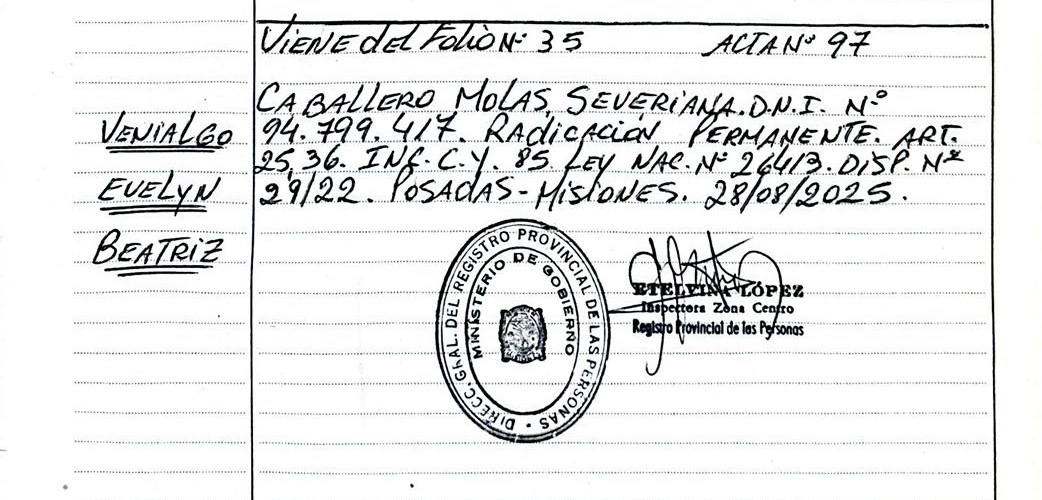 Viene del Folio Nº 35 ACTA Nº 97
CABALLERO MOLAS, SEVERIANA. D.N.I. Nº
94.799.417. RADICACIÓN PERMANENTE. ART.
25,36. INC. C.Y. 85. LEY NAC. Nº 26413. DISP. Nº
29/22. POSADAS - MISIONES. 28/08/2025.
VENIALGO
EVELYN
BEATRIZ
DIRECC. GRAL. DEL REGISTRO PROVINCIAL DE LAS PERSONAS
MINISTERIO DE GOBIERNO
ETELVINA LÓPEZ
Inspectora Zona Centro
Registro Provincial de las Personas